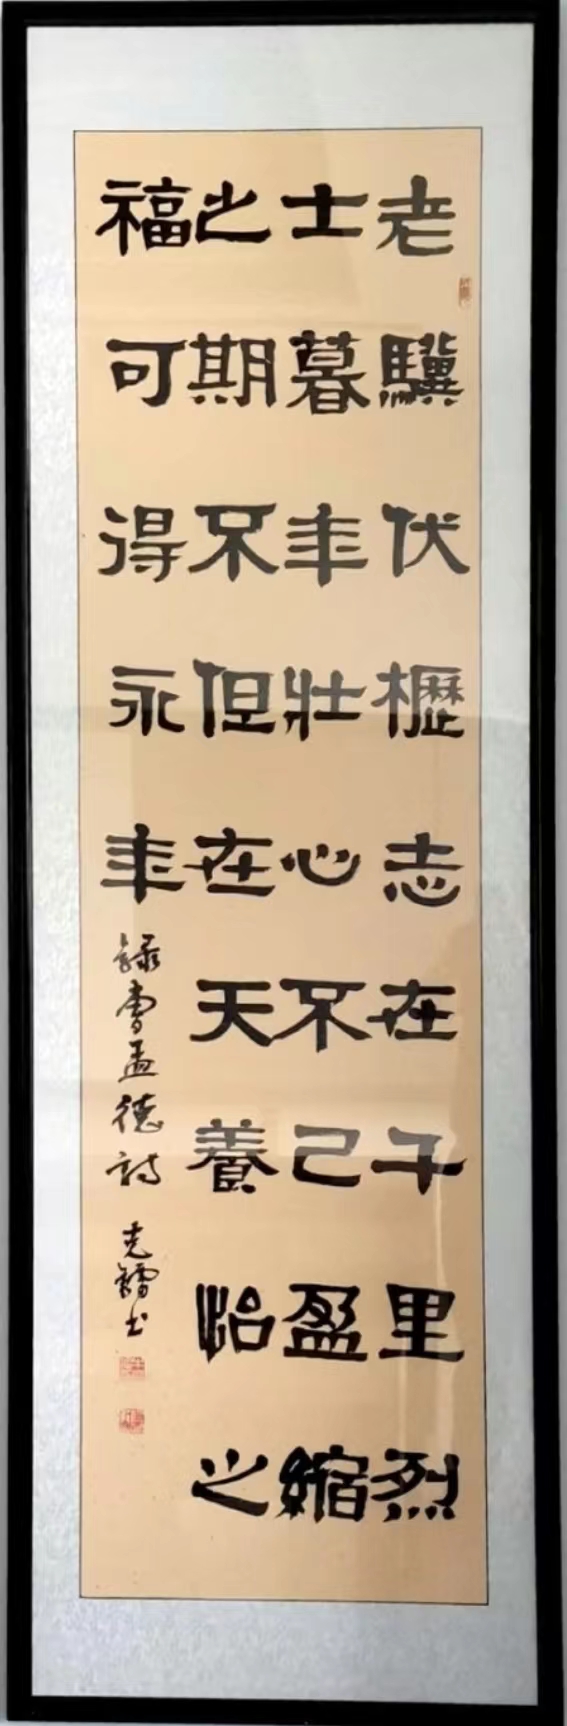 老驥伏櫪志在千里烈
士暮年壯心不已盈縮
之期不但在天養怡之
福可得永年
錄曹孟德詩 克书